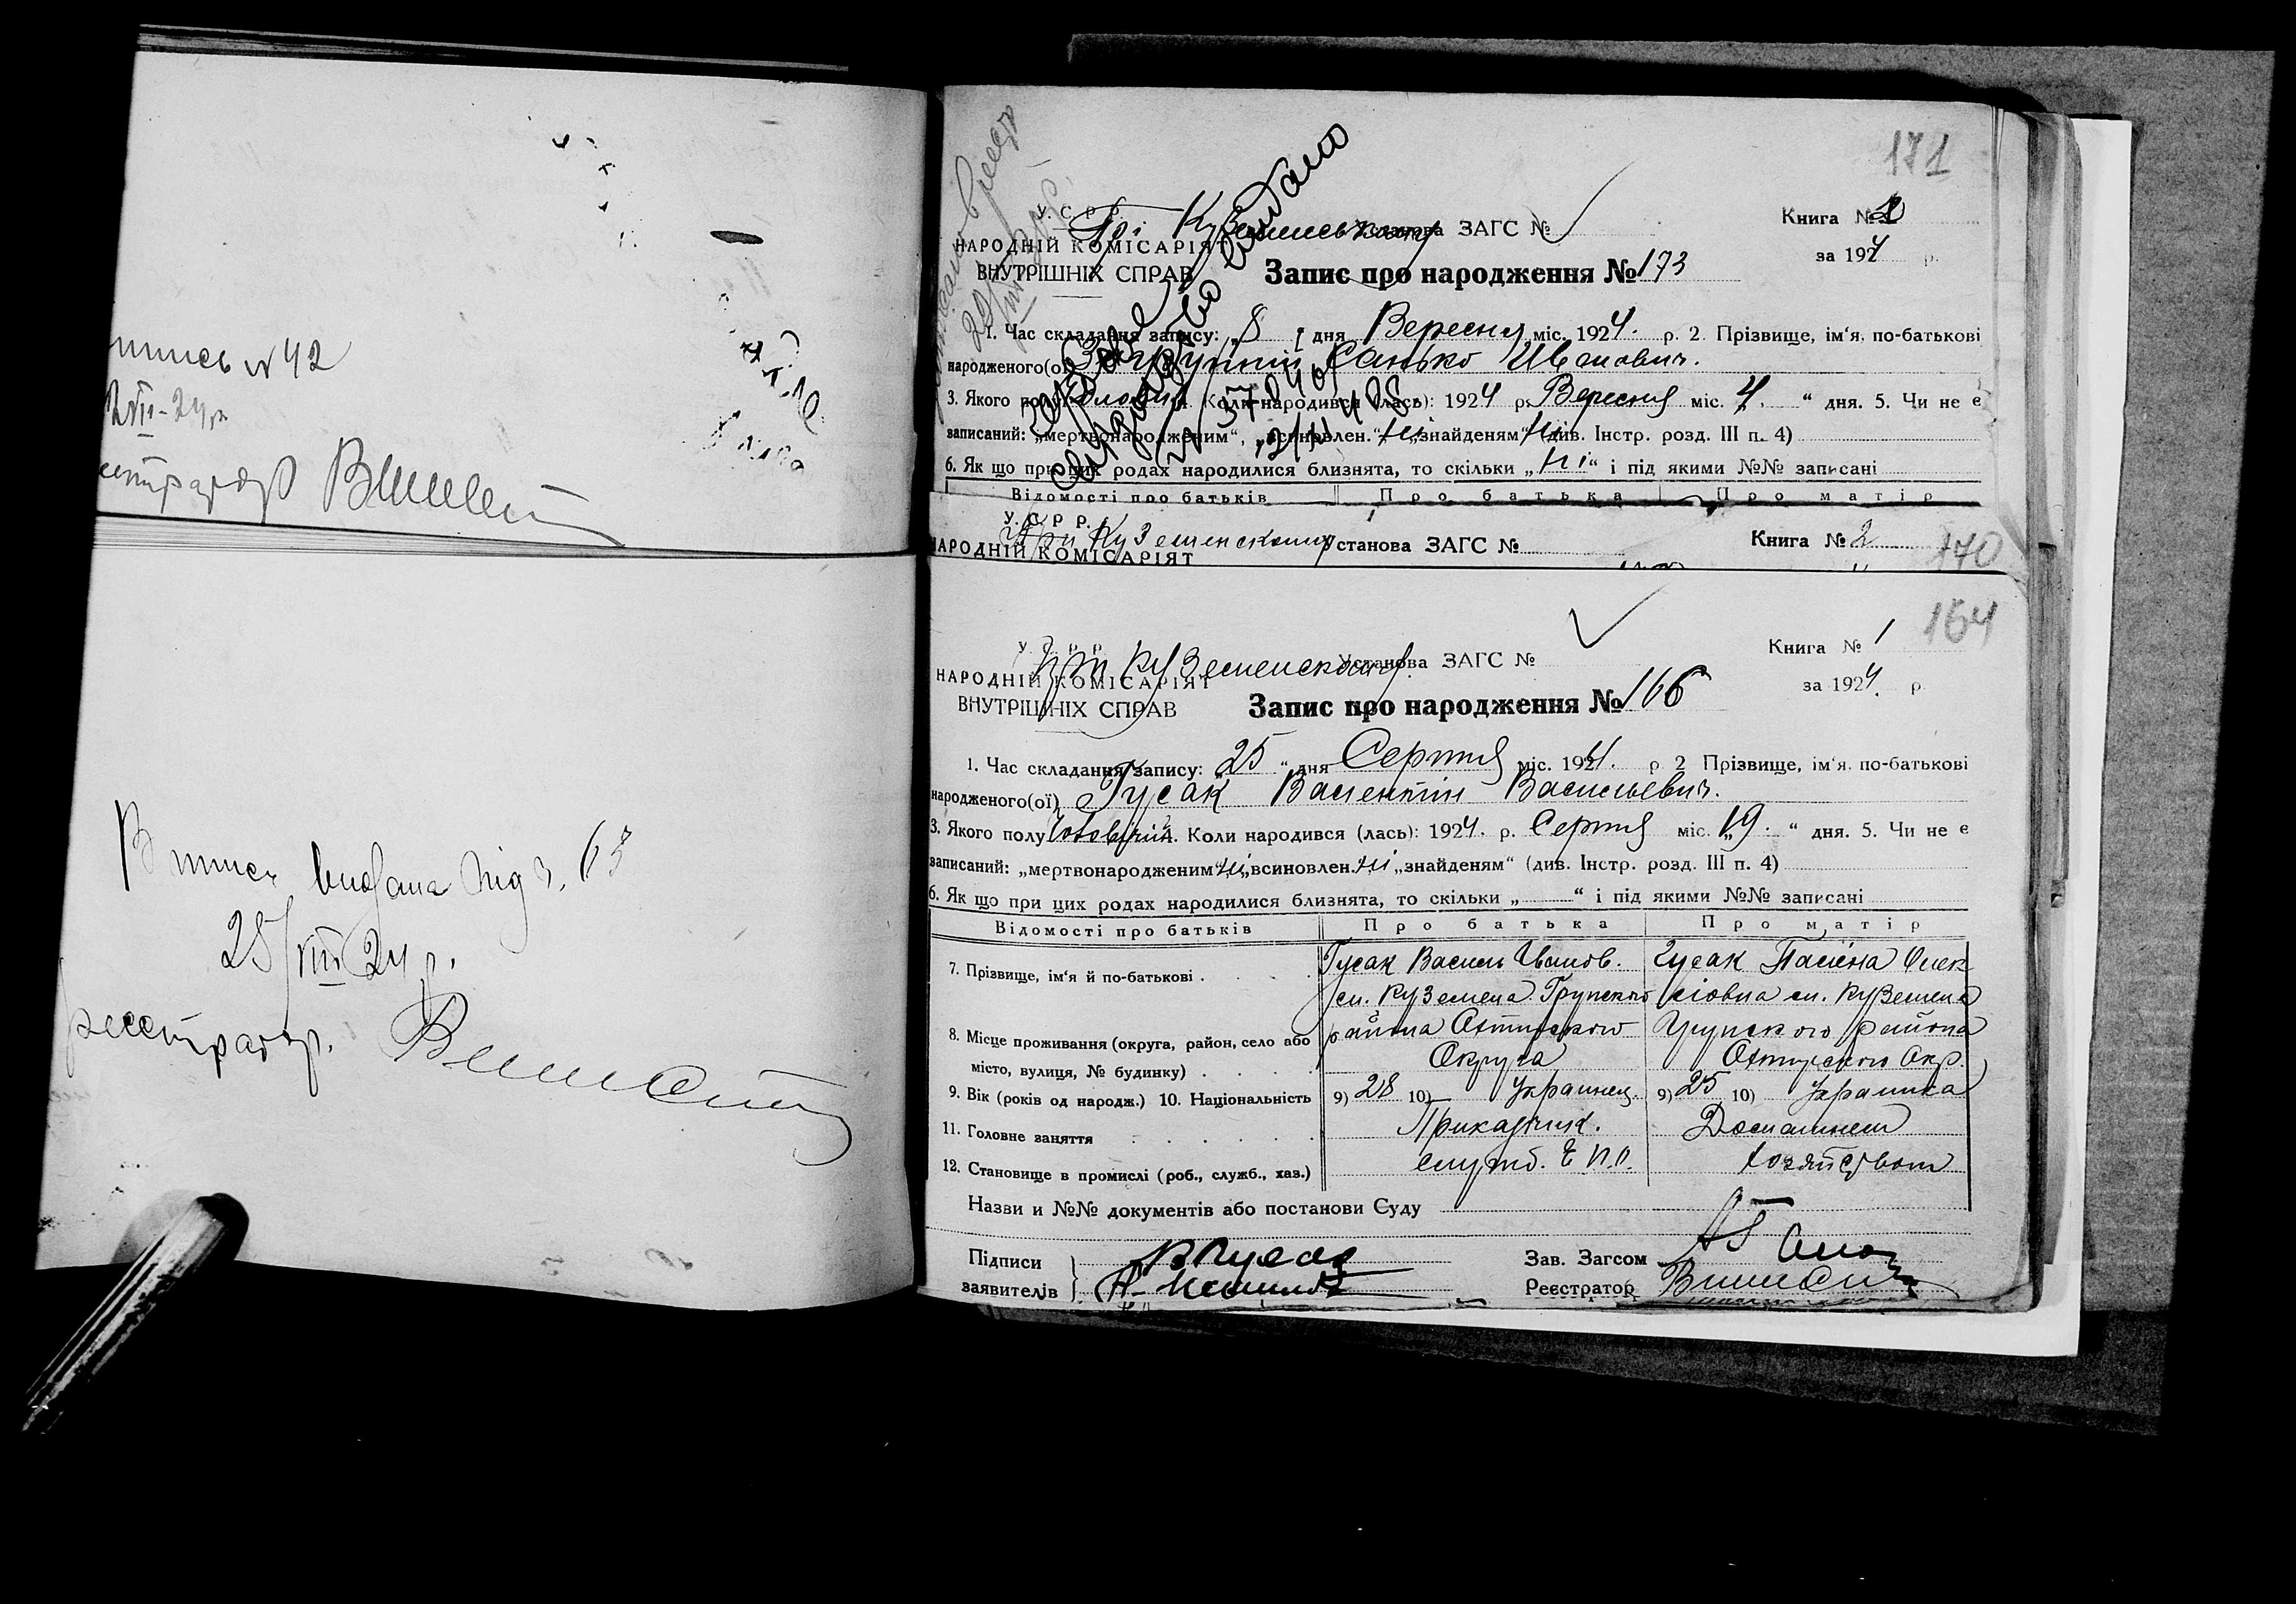 42
171
У. С. Р. Р.
НАРОДНІЙ КОМІСАРІЯТ
ВНУТРІШНІХ СПРАВ
Установа ЗАГС №
Книга № 2
за 1924 р.
Запис про народження № 173
1. Час складання запису: „8 дня Вересня міс. 1924. р. 2. Прізвище, ім‘я, по-батькові
народженого(ої) Санько Иванович.
3. Якого полу 4. Коли народився (лась): 1924 р. Вересня міс. „4. “ дня. 5. Чи не є
записаний: „мертвонародженим“, „всиновлен.“ ні „знайденям“ ні (див. Інстр. розд. III п. 4)
6. Як що при цих родах народилися близнята, то скільки „ні“ і під якими №№ записані
Відомості про батьків Про батька Про матір
свидоцтво видано
У. С. Р. Р.
При Куземенському Установа ЗАГС № Книга № 2 170
НАРОДНІЙ КОМІСАРІЯТ
164
У. С. Р. Р.
Куземенському Установа ЗАГС № Книга № 1
НАРОДНІЙ КОМІСАРІЯТ
за 1924. р
ВНУТРІШНІХ СПРАВ
Запис про народження № 166
1. Час складання запису: „25 “ дня Серпня міс. 1924. р 2 Прізвище, ім‘я, по-батькові
народженого(ої) Гусак Валентін Васильевич.
3. Якого полу Чоловічий 4. Коли народився (лась): 1924. р. Серпня міс. „19. “ дня. 5. Чи не є
записаний: „мертвонародженим“ ні „всиновлен. ні „знайденям“ (див. Інстр. розд. III п. 4)
6. Як що при цих родах народилися близнята, то скільки „ “ і під якими №№ записані
Відомості про батьків Про батька Про матір
7. Прізвище, ім‘я й по-батькові Гусак Василь Іванов. Гусак Олек
сл. Куземена Грунского сіовна сл. Куземена
8. Місце проживання (округа, район, село або
місто, вулиця, № будинку)
района Ахтирского Грунского района
Округа Ахтирского Окр.
9. Вік (років од народж.) 10. Національність 9) 28 10) Украинец. 9) 25 10) Украинка
11. Головне заняття Приказчик. Домашнем
12. Становище в промислі (роб., служб., хаз.) служб. Е П.О. хозяйством
Назви и №№ документів або постанови Суду
Підписи
заявителів
В Гусак
Зав. Загсом
Реєстратор
Виписк видана під №. 63
25/VIII 24 р.
реєстратор.